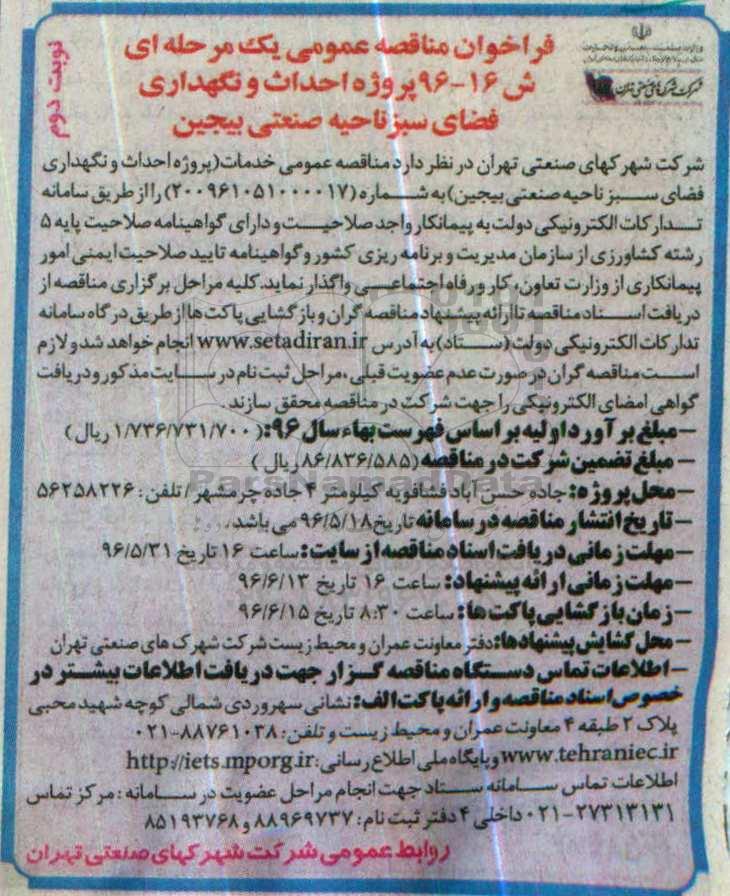 نوبت دوم
فراخوان مناقصه عمومی یک مرحله ای
ش ۱۶-۹۶ پروژه احداث و نگهداری
فضای سبز ناحیه صنعتی بیجین
شرکت شهرکهای صنعتی تهران در نظر دارد مناقصه عمومی خدمات (پروژه احداث و نگهداری
فضای سبز ناحیه صنعتی بیجین) به شماره (۲۰۰۹۶۱۰۵۱۰۰۰۰۱۷) را از طریق سامانه
تدارکات الکترونیکی دولت به پیمانکار واجد صلاحیت و دارای گواهینامه صلاحیت پایه ۵
رشته کشاورزی از سازمان مدیریت و برنامه ریزی کشور و گواهینامه تایید صلاحیت ایمنی امور
پیمانکاری از وزارت تعاون، کار و رفاه اجتماعی واگذار نماید. کلیه مراحل برگزاری مناقصه از
دریافت اسناد مناقصه تا ارائه پیشنهاد مناقصه گران و بازگشایی پاکت ها از طریق درگاه سامانه
تدارکات الکترونیکی دولت (ستاد) به آدرس www.setadiran.ir انجام خواهد شد و لازم
است مناقصه گران در صورت عدم عضویت قبلی، مراحل ثبت نام در سایت مذکور و دریافت
گواهی امضای الکترونیکی را جهت شرکت در مناقصه محقق سازند.
-مبلغ برآورد اولیه بر اساس فهرست بهاء سال ۹۶: (۱/۷۳۶/۷۳۱/۷۰۰ ریال)
- مبلغ تضمین شرکت در مناقصه (۸۶/۸۳۶/۵۸۵ ریال)
-محل پروژه: جاده حسن آباد فشافویه کیلومتر ۴ جاده چرمشهر / تلفن: ۵۶۲۵۸۲۲۶
-تاریخ انتشار مناقصه در سامانه تاریخ ۹۶/۵/۱۸ می باشد.
-مهلت زمانی دریافت اسناد مناقصه از سایت: ساعت ۱۶ تاریخ ۹۶/۵/۳۱
-مهلت زمانی ارائه پیشنهاد: ساعت ۱۶ تاریخ ۹۶/۶/۱۳
-زمان بازگشایی پاکت ها: ساعت ۸:۳۰ تاریخ ۹۶/۶/۱۵
-محل گشایش پیشنهادها: دفتر معاونت عمران و محیط زیست شرکت شهرک های صنعتی تهران
-اطلاعات تماس دستگاه مناقصه گزار جهت دریافت اطلاعات بیشتر در
خصوص اسناد مناقصه و ارائه پاکت الف: نشانی سهروردی شمالی کوچه شهید محبی
پلاک ۲ طبقه ۴ معاونت عمران و محیط زیست و تلفن: ۸۸۷۶۱۰۳۸-۰۲۱
www.tehraniec.ir و پایگاه ملی اطلاع رسانی: http://iets.mporg.ir
اطلاعات تماس سامانه ستاد جهت انجام مراحل عضویت در سامانه: مرکز تماس
۲۷۳۱۳۱۳۱-۰۲۱ داخلی ۴ دفتر ثبت نام: ۸۸۹۶۹۷۳۷ و ۸۵۱۹۳۷۶۸
روابط عمومی شرکت شهرکهای صنعتی تهران
ParsNamadData